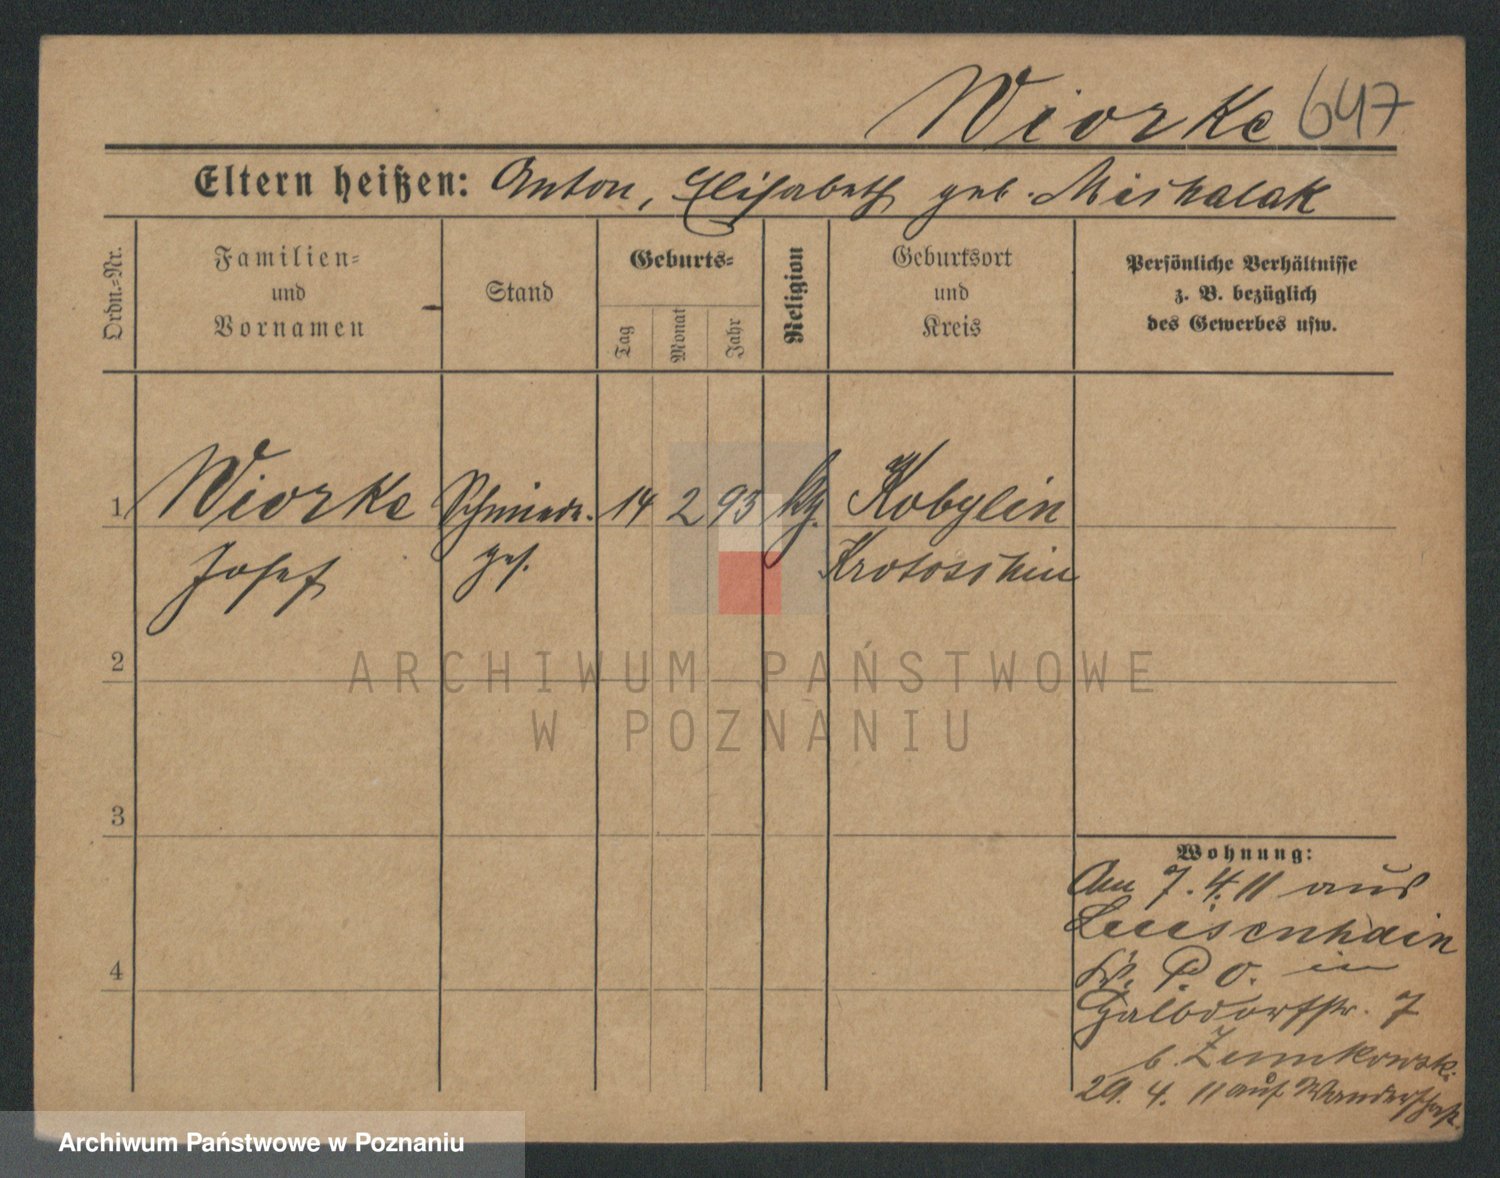 Wiorke 647
Eltern heißen: Anton, Elisabeth geb. Mishalak
Ordn.-Nr.
Familien-
und
Vornamen
Stand
Geburts-
Tag
Monat
Jahr
Religion
Geburtsort
und
Kreis
Persönliche Verhältnisse
z. B. bezüglich
des Gewerbes usw.
1 Wiorke Schmiede- 14 2 93 Kobylin
Josef ges. Krotoschin
2
3
4
Wohnung:
Am 7.4.11 aus
Luisenhain
P. O. in
Halbdorfstr. 7
b. Zimkowski
29. 4. 11 auf Wanderschaft.
ARCHIWUM PAŃSTWOWE
W POZNANIU
Archiwum Państwowe w Poznaniu